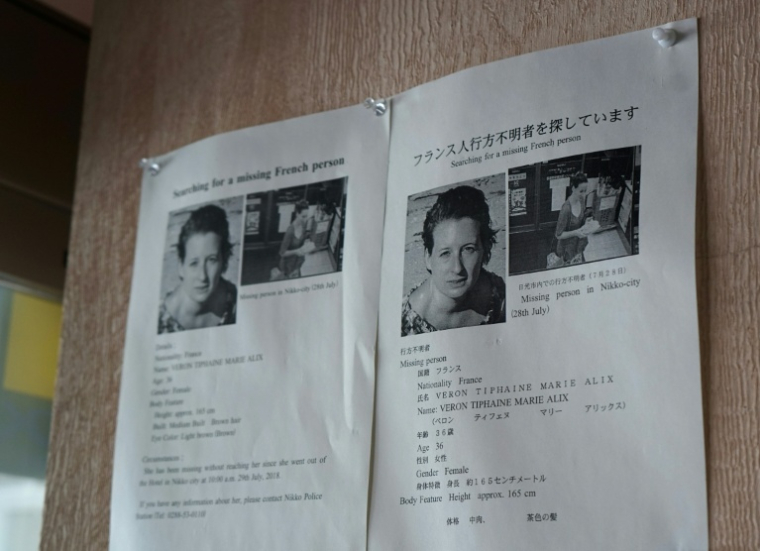 Searching for a missing French person
Missing person in Nikko-city (28th July)
Details :
Nationality: France
Name: VERON TIPHAINE MARIE ALIX
Age: 36
Gender: Female
Body Feature
Height: approx. 165 cm
Built: Medium Built Brown hair
Eye Color: Light brown (Brown)
Circumstances :
She has been missing without reaching her since she went out of
the Hotel in Nikko city at 10:00 a.m. 29th July, 2018.
If you have any information about her, please contact Nikko Police
Station
フランス人行方不明者を探しています
Searching for a missing French person
日光市内での行方不明者（7月28日）
Missing person in Nikko-city
(28th July)
行方不明者
Missing person
国籍 フランス
Nationality France
氏名 VERON TIPHAINE MARIE ALIX
Name: VERON TIPHAINE MARIE ALIX
(ベロン ティフェヌ マリー アリックス)
年齢 36歳
Age 36
性別 女性
Gender Female
身体特徴 身長 約165センチメートル
Body Feature Height approx. 165 cm
体格 中肉、 茶色の髪